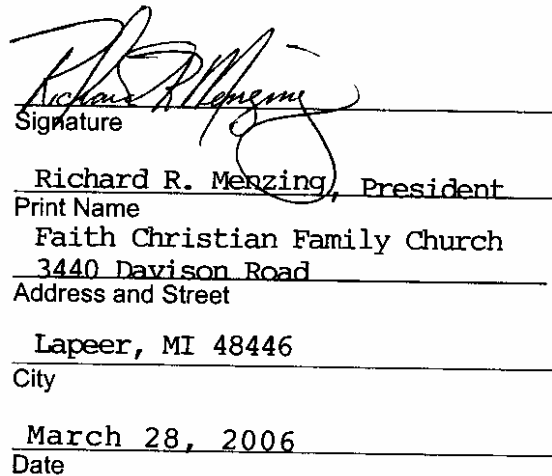 Richard R Menzing
Signature
Richard R. Menzing, President
Print Name
Faith Christian Family Church
3440 Davison Road
Address and Street
Lapeer, MI 48446
City
March 28, 2006
Date